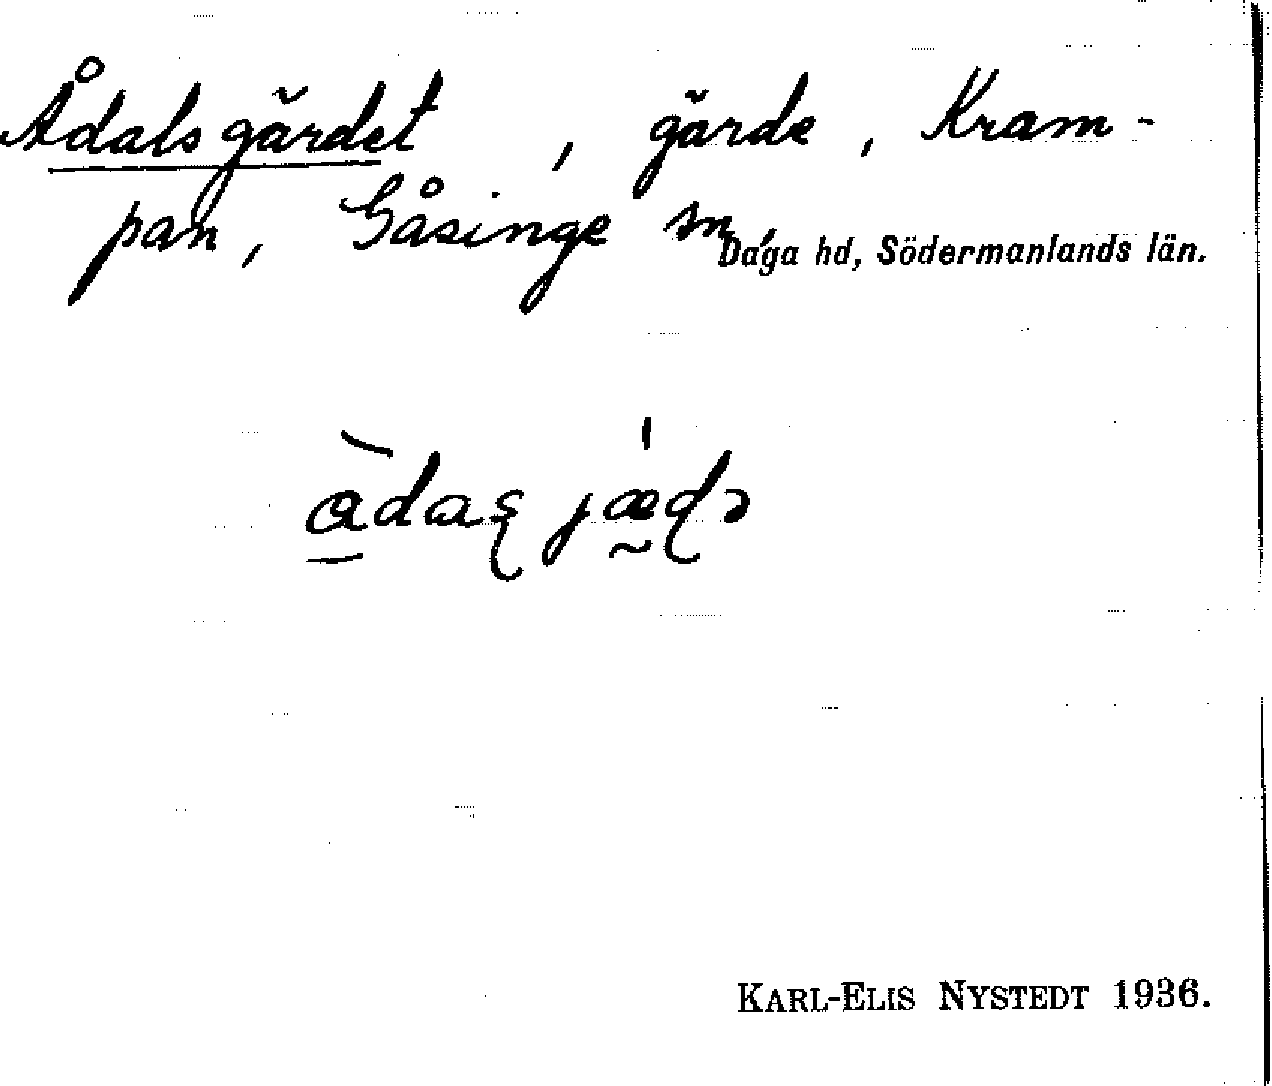 Ådalsgärdet, gärde, Kram-
pan, Gåsinge sn,
Daga hd, Södermanlands län.
KARL-ELIS NYSTEDT 1936.